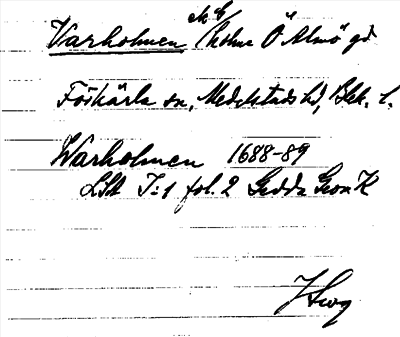 Varholmen (holme Ö Almö gd
Förkärla sn, Medelstads hd, Blek. l.
Warholmen 1688-89
LSA I:1 fol. 2 Gedda Geom K